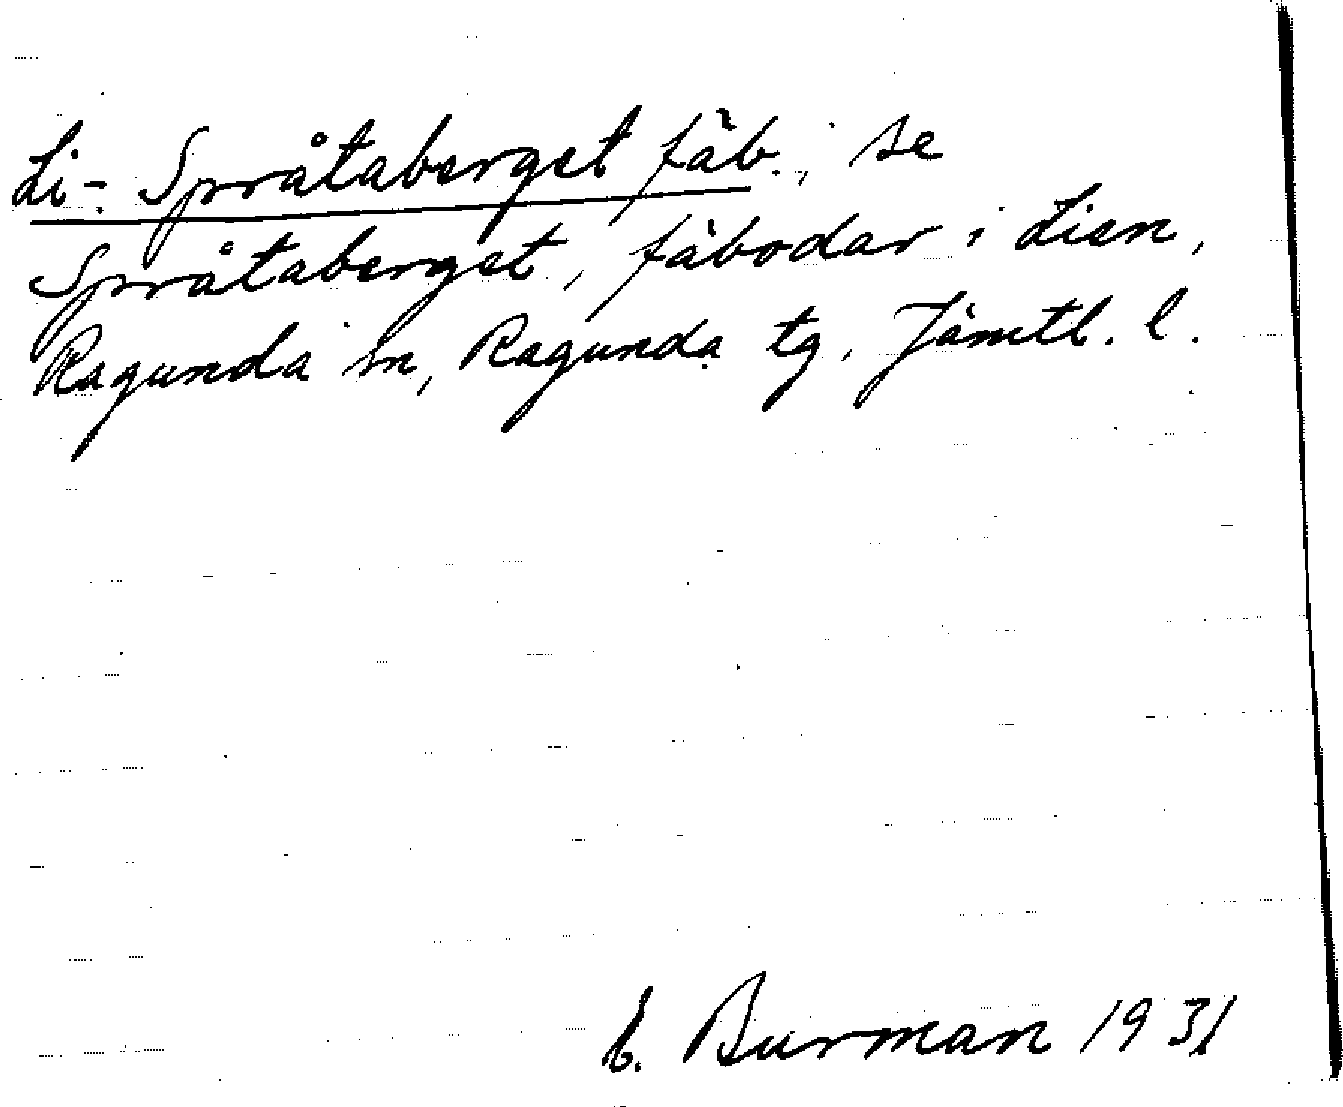 Li-Språtaberget fäb., se
Språtaberget, fäbodar i Lien,
Ragunda sn, Ragunda tg. Jämtl. l.
E. Burman 1931